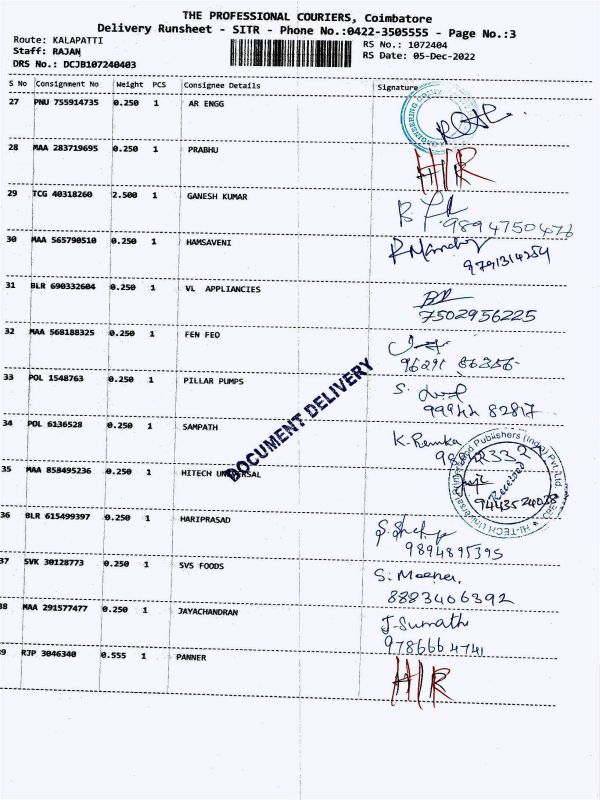 THE PROFESSIONAL COURIERS, Coimbatore
Delivery Runsheet - SITR - Phone No.:0422-3505555 - Page No.:3
Route: KALAPATTI RS No.: 1072404
Staff: RAJAN RS Date: 05-Dec-2022
DRS No.: DCJB107240403
S No Consignment No Weight PCS Consignee Details Signature
27 PNU 755914735 0.250 1 AR ENGG
28 MAA 283719695 0.250 1 PRABHU H/R
29 TCG 40318260 2.500 1 GANESH KUMAR
9894750476
30 MAA 565790510 0.250 1 HAMSAVENI
9791314254
31 BLR 690332604 0.250 1 VL APPLIANCIES
7502956225
32 MAA 568188325 0.250 1 FEN FEO
96291 86356
33 POL 1548763 0.250 1 PILLAR PUMPS S.
99944 82817
DOCUMENT DELIVERY
34 POL 6136528 0.250 1 SAMPATH K. Renuka
35 MAA 858495236 0.250 1 HITECH UNIVERSAL Received
9443524028
36 BLR 615499397 0.250 1 HARIPRASAD
9894895395
37 SVK 30128773 0.250 1 SVS FOODS S. Meena
8883406392
38 MAA 291577477 0.250 1 JAYACHANDRAN J. Sumathi
9786664741
39 RJP 3046340 0.555 1 PANNER H/R